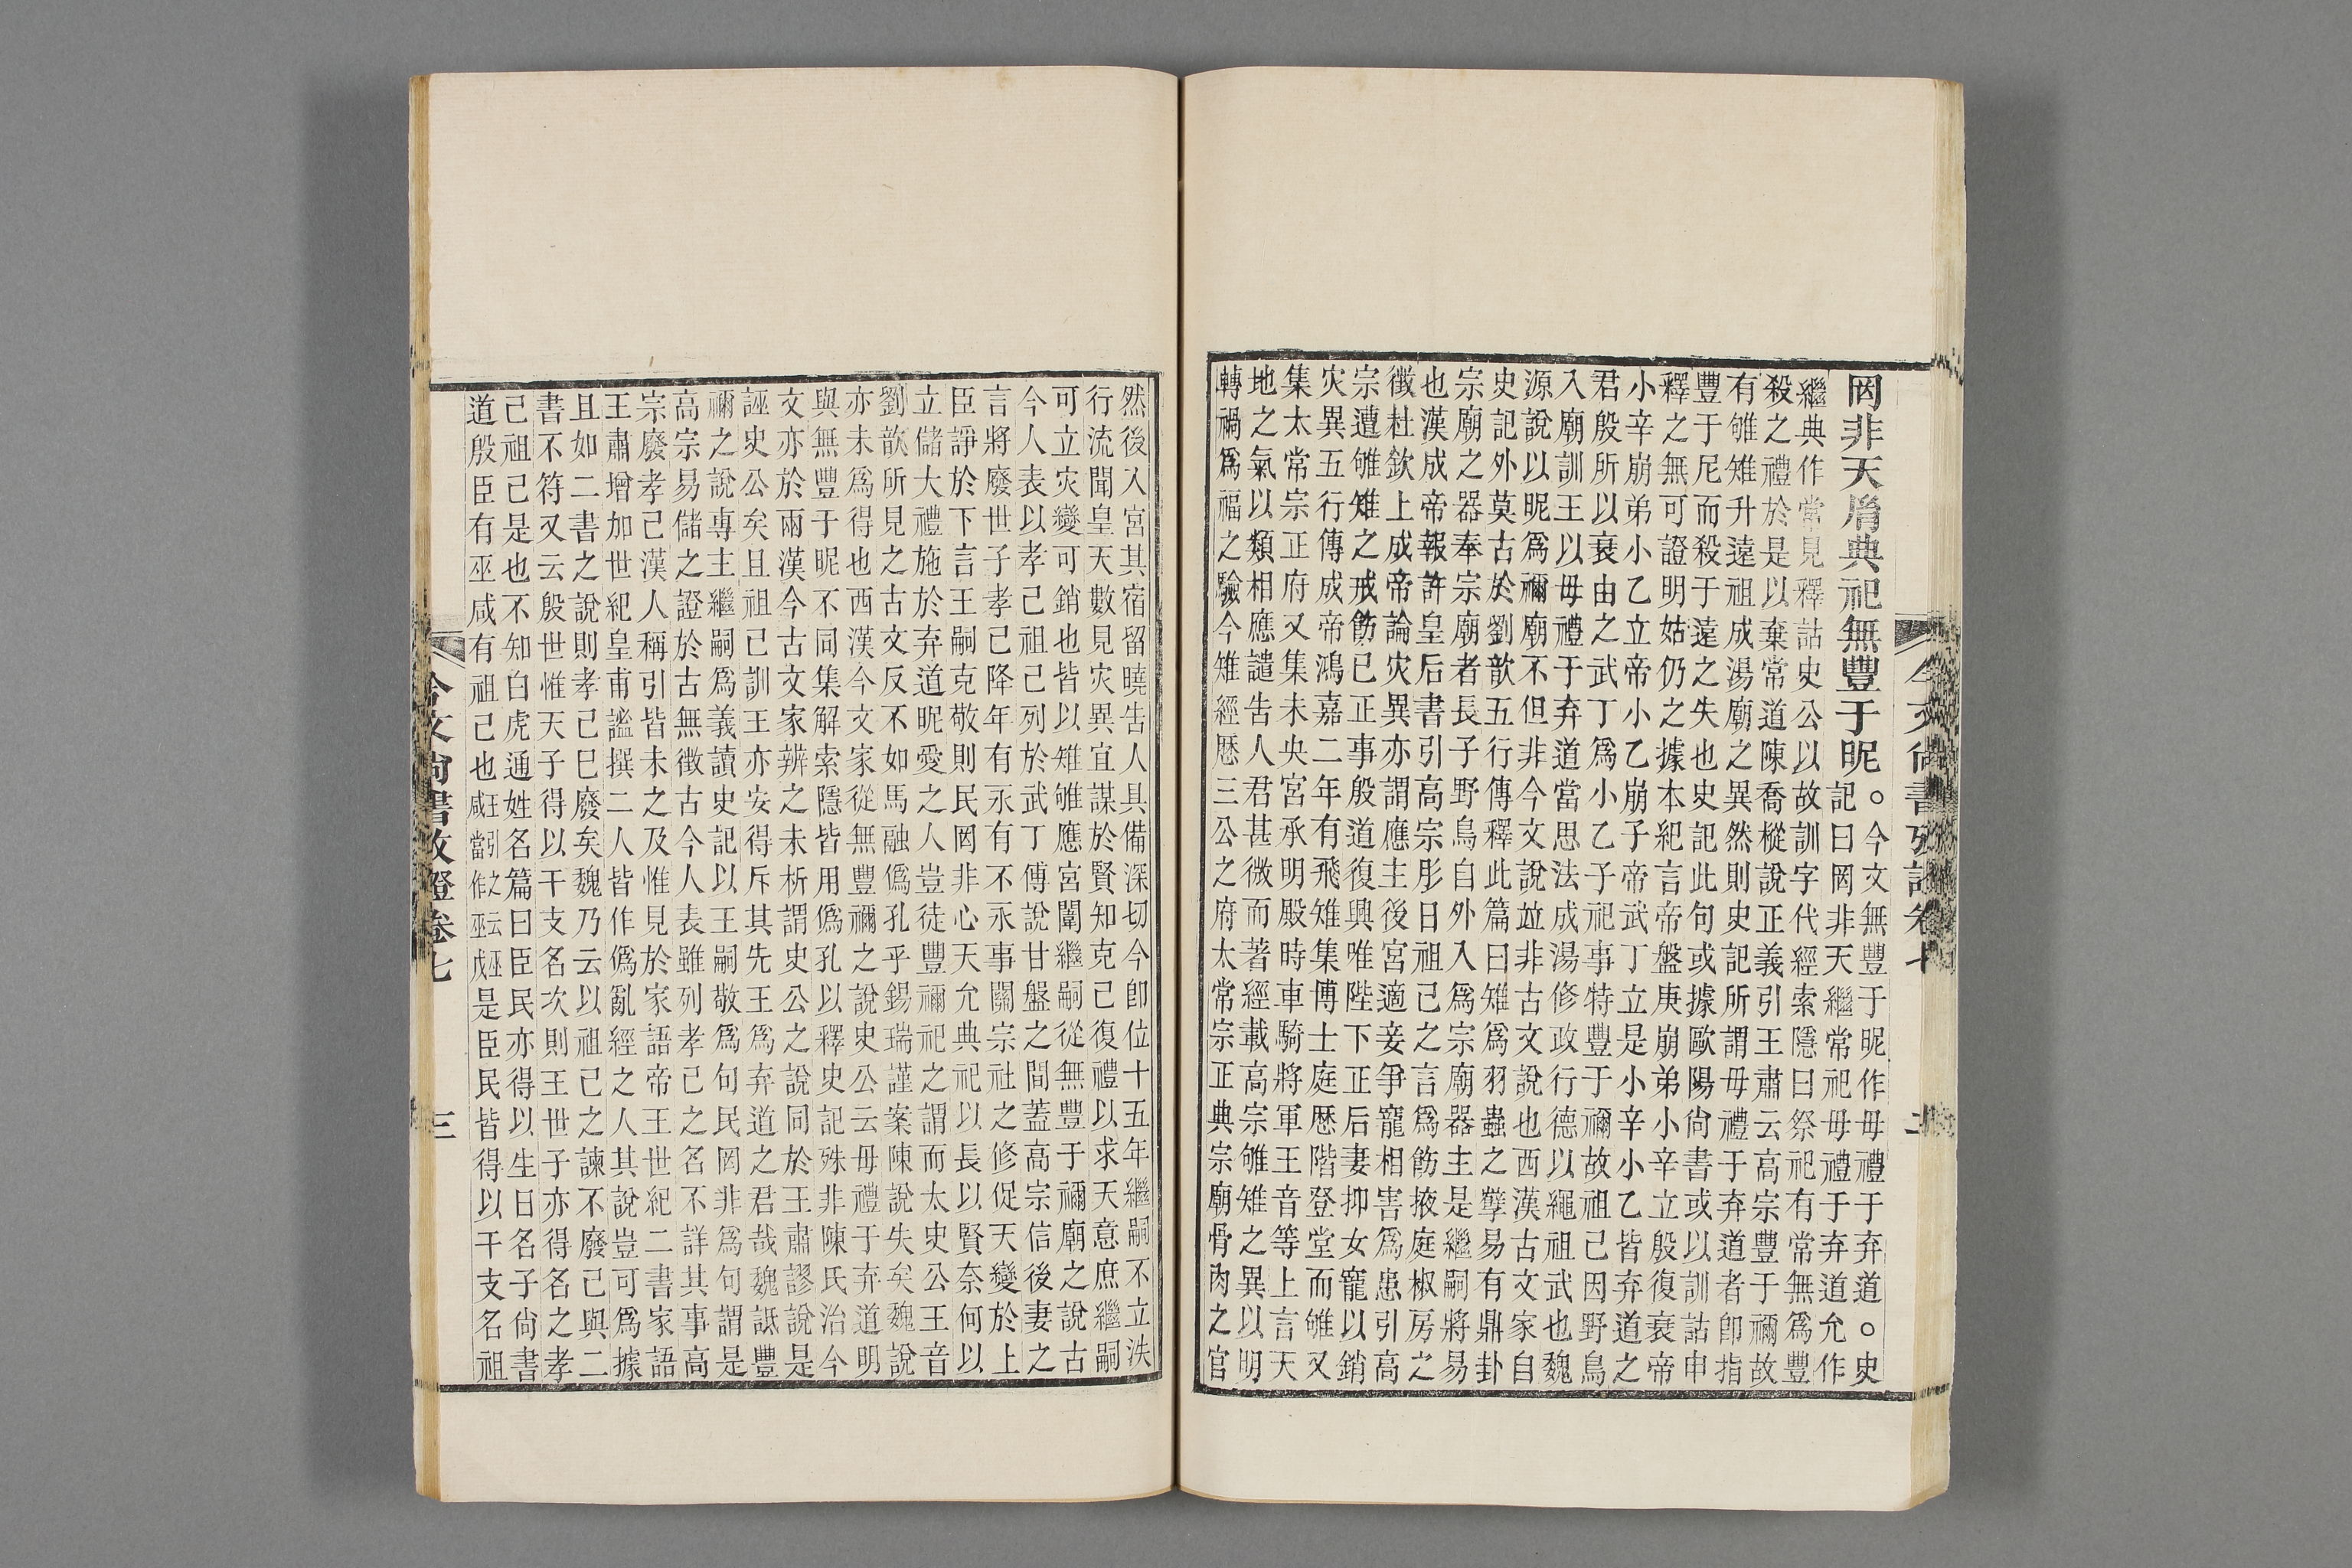 罔非天𦙍典祀無豐于昵。今文無豐于昵作毋禮于弃道。史
記曰罔非天繼常祀毋禮于弃道允作
繼典作常見釋詁史公以故訓字代經索隱曰祭祀有常無爲豐
殺之禮於是以棄常道陳喬樅說正義引王肅云高宗豐于禰故
有雊雉升遠祖成湯廟之異然則史記所謂毋禮于弃道者卽指
豐于尼而殺于遠之失也史記此句或據歐陽尙書或以訓詁申
釋之無可證明姑仍之據本紀言帝盤庚崩弟小辛立殷復衰帝
小辛崩弟小乙立帝小乙崩子帝武丁立是小辛小乙皆弃道之
君殷所以衰由之武丁爲小乙子祀事特豐于禰故祖己因野鳥
入廟訓王以毋禮于弃道當思法成湯修政行德以繩祖武也魏
源說以昵爲禰廟不但非今文說竝非古文說也西漢古文家自
史記外莫古於劉歆五行傳釋此篇曰雉爲羽蟲之孽易有鼎卦
宗廟之器奉宗廟者長子野鳥自外入爲宗廟器主是繼嗣將易
也漢成帝報許皇后書引高宗肜日祖己之言爲飭掖庭椒房之
徵杜欽上成帝論灾異亦謂應主後宮適妾爭寵相害爲患引高
宗遭雊雉之戒飭己正事殷道復興唯陛下正后妻抑女寵以銷
灾異五行傳成帝鴻嘉二年有飛雉集博士庭歷階登堂而雊又
集太常宗正府又集未央宮承明殿時車騎將軍王音等上言天
地之氣以類相應譴告人君甚微而著經載高宗雊雉之異以明
轉禍爲福之驗今雉經歷三公之府太常宗正典宗廟骨肉之官
然後入宮其宿留曉告人具備深切今卽位十五年繼嗣不立泆
行流聞皇天數見灾異宜謀於賢知克己復禮以求天意庶繼嗣
可立灾變可銷也皆以雉雊應宮闈繼嗣從無豐于禰廟之說古
今人表以孝己祖己列於武丁傅說甘盤之間蓋高宗信後妻之
言將廢世子孝己降年有永有不永事關宗社之修促天變於上
臣諍於下言王嗣克敬則民罔非心天允典祀以長以賢奈何以
立儲大禮施於弃道昵愛之人豈徒豐禰祀之謂而太史公王音
劉歆所見之古文反不如馬融僞孔乎錫瑞謹案陳說失矣魏說
亦未爲得也西漢今文家從無豐禰之說史公云毋禮于弃道明
與無豐于昵不同集解索隱皆用僞孔以釋史記殊非陳氏治今
文亦於兩漢今古文家辨之未析謂史公之說同於王肅謬說是
誣史公矣且祖己訓王亦安得斥其先王爲弃道之君哉魏詆豐
禰之說専主繼嗣爲義讀史記以王嗣敬爲句民罔非爲句謂是
高宗易儲之證於古無徵古今人表雖列孝己之名不詳其事高
宗廢孝己漢人稱引皆未之及惟見於家語帝王世紀二書家語
王肅增加世紀皇甫謐撰二人皆作僞亂經之人其說豈可爲據
且如二書之說則孝己已廢矣魏乃云以祖己之諫不廢己與二
書不符又云殷世惟天子得以干支名次則王世子亦得名之孝
己祖己是也不知白虎通姓名篇曰臣民亦得以生日名子尙書
道殷臣有巫咸有祖己也王引之云巫咸當作巫戊是臣民皆得以干支名祖
今文尙書攷證卷七
三